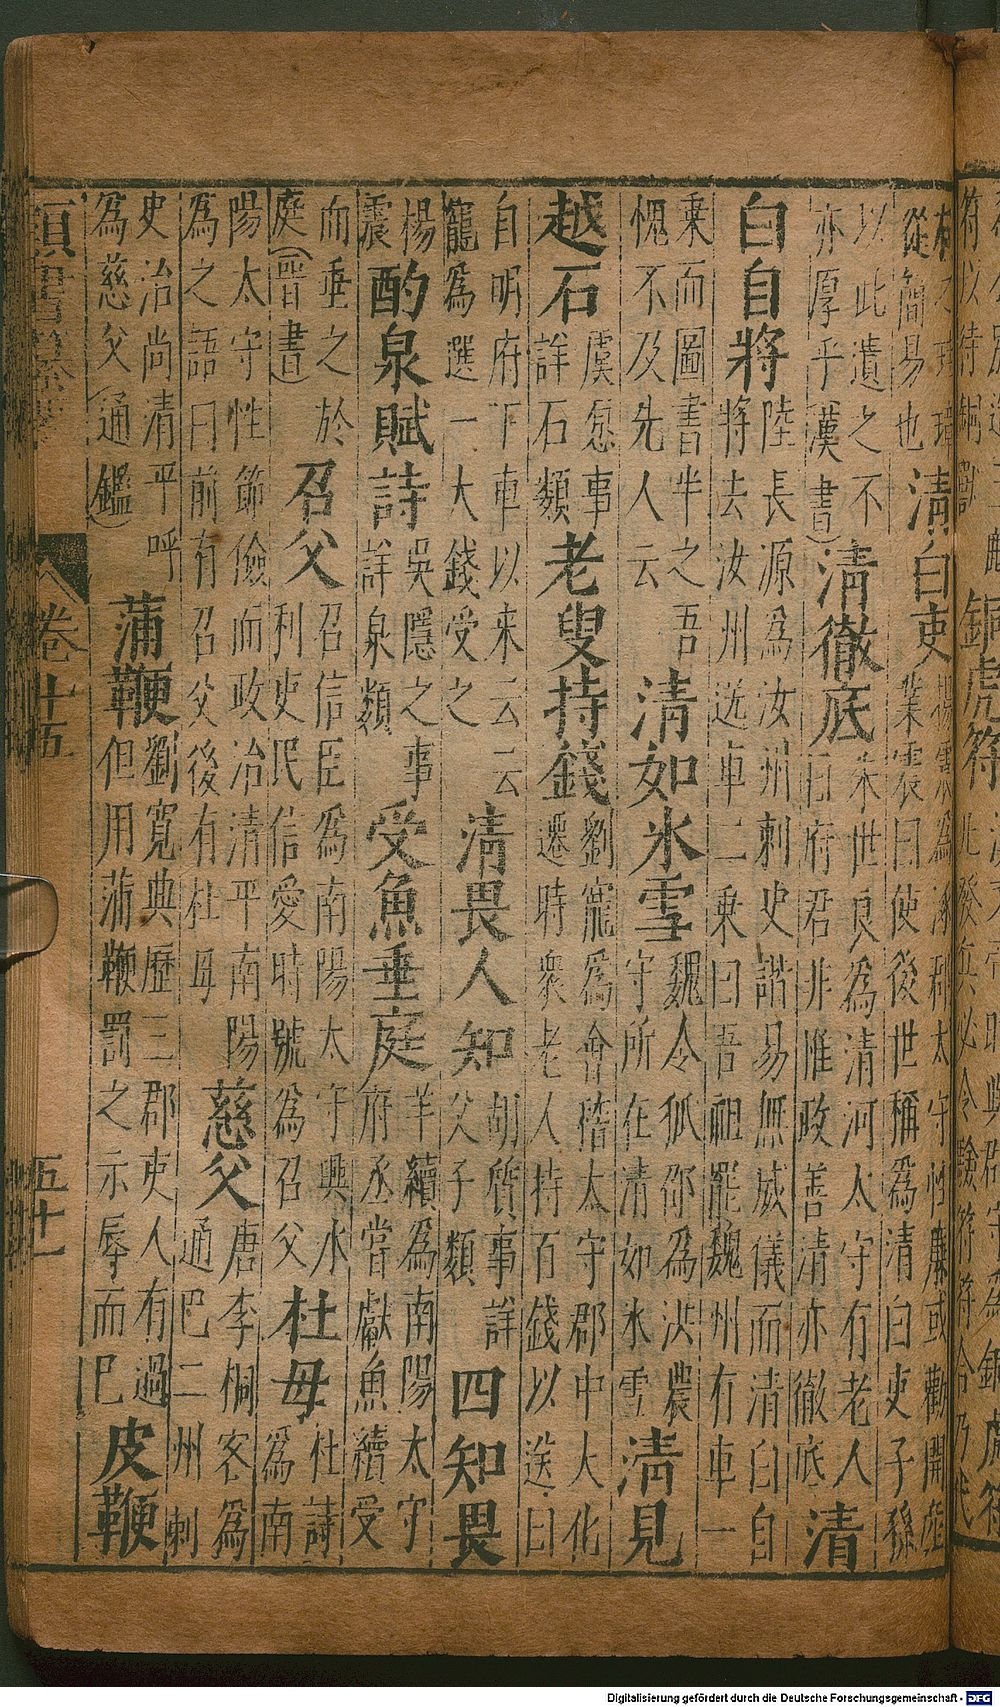 從簡易也清白吏楊震為涿郡太守性廉或勸開產業震曰使後世稱為清白吏子孫
以此遺之不亦厚乎漢書)清徹底宋世良為清河太守有老人曰府君非惟政善清亦徹底清
白自將陸長源為汝州刺史諧易無威儀而清白自將去汝州送車二乘曰吾祖罷魏州有車一
乘而圖書半之吾愧不及先人云清如氷雪魏令狐邵為洪農守所在清如氷雪清見
越石虞愿事詳石類老叟持錢劉寵為會稽太守郡中大化遷時衆老人持百錢以送曰
自明府下車以来云云寵為選一大錢受之清畏人知胡質事詳父子類四知畏
楊震酌泉賦詩吳隱之事詳泉類受魚垂庭羊續為南陽太守府丞嘗獻魚續受
而垂之於庭(晋書)召父召信臣為南陽太守興水利吏民信愛時號為召父杜母杜詩為南
陽太守性節儉而政治清平南陽為之語曰前有召父後有杜母慈父唐李桐客為通巴二州刺
史治尚清平呼為慈父(通鑑)蒲鞭劉寬典歷三郡吏人有過但用蒲鞭罰之示辱而已皮鞭
卷十五
Digitalisierung gefördert durch die Deutsche Forschungsgemeinschaft - DFG